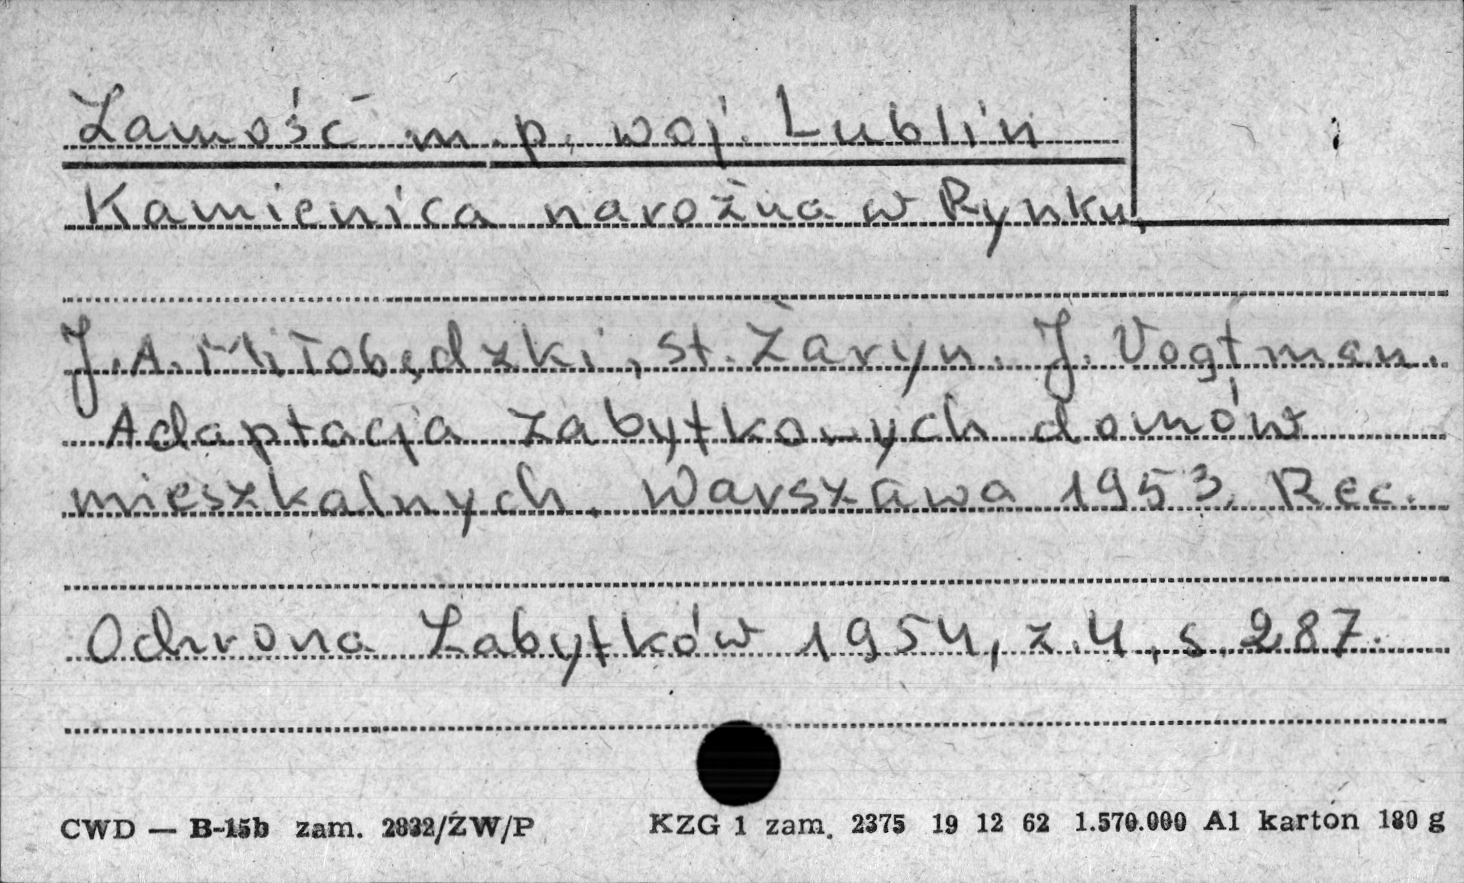 Zamość m.p. woj. Lublin
Kamienica narożna w Rynku,
J.A. Miłobędzki, St. Żaryn. J. Vogtman.
Adaptacja zabytkowych domów
mieszkalnych. Warszawa 1953. Rec.
Ochrona Zabytków 1954, z.4, s.287.
CWD — B-15b zam. 2832/ŻW/P KZG 1 zam. 2375 19 12 62 1.570.000 A1 karton 180 g